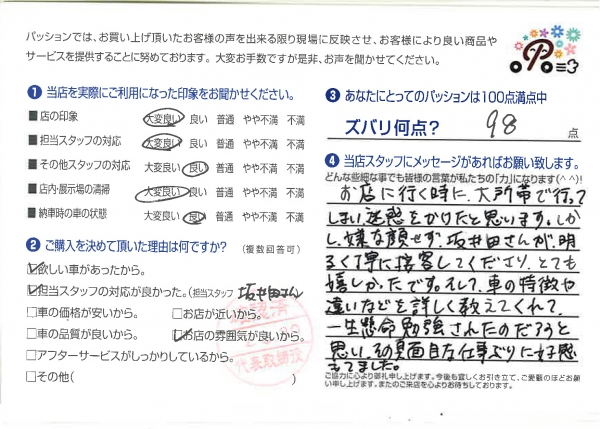 パッションでは、お買い上げ頂いたお客様の声を出来る限り現場に反映させ、お客様により良い商品や
サービスを提供することに努めております。大変お手数ですが是非、お声を聞かせてください。
❶ 当店を実際にご利用になった印象をお聞かせください。
■店の印象 大変良い 良い 普通 やや不満 不満
■担当スタッフの対応 大変良い 良い 普通 やや不満 不満
■その他スタッフの対応 大変良い 良い 普通 やや不満 不満
■店内・展示場の清掃 大変良い 良い 普通 やや不満 不満
■納車時の車の状態 大変良い 良い 普通 やや不満 不満
❷ ご購入を決めて頂いた理由は何ですか? (複数回答可)
☑欲しい車があったから。
☑担当スタッフの対応が良かった。(担当スタッフ 坂井田さん)
□車の価格が安いから。 □お店が近いから。
□車の品質が良いから。 ☑お店の雰囲気が良いから。
□アフターサービスがしっかりしているから。
□その他( )
確認済
代表取締役
❸ あなたにとってのパッションは100点満点中
ズバリ何点? 98 点
❹ 当店スタッフにメッセージがあればお願い致します。
どんな些細な事でも皆様の言葉が私たちの「力」になります(^^)!
お店に行く時に、大所帯で行って
しまい迷惑をかけたと思います。しか
し、嫌な顔せず、坂井田さんが、明
るく丁寧に接客してくださり、とても
嬉しかったです。そして、車の特徴や
違いなどを詳しく教えてくれて、
一生懸命勉強されたのだろうと
思い、その真面目な仕事ぶりに好感
もてました。
ご協力に心より御礼申し上げます。今後も宜しくお引き立て、ご愛顧のほどお願
い申し上げます。またのご来店を心よりお待ちしております。